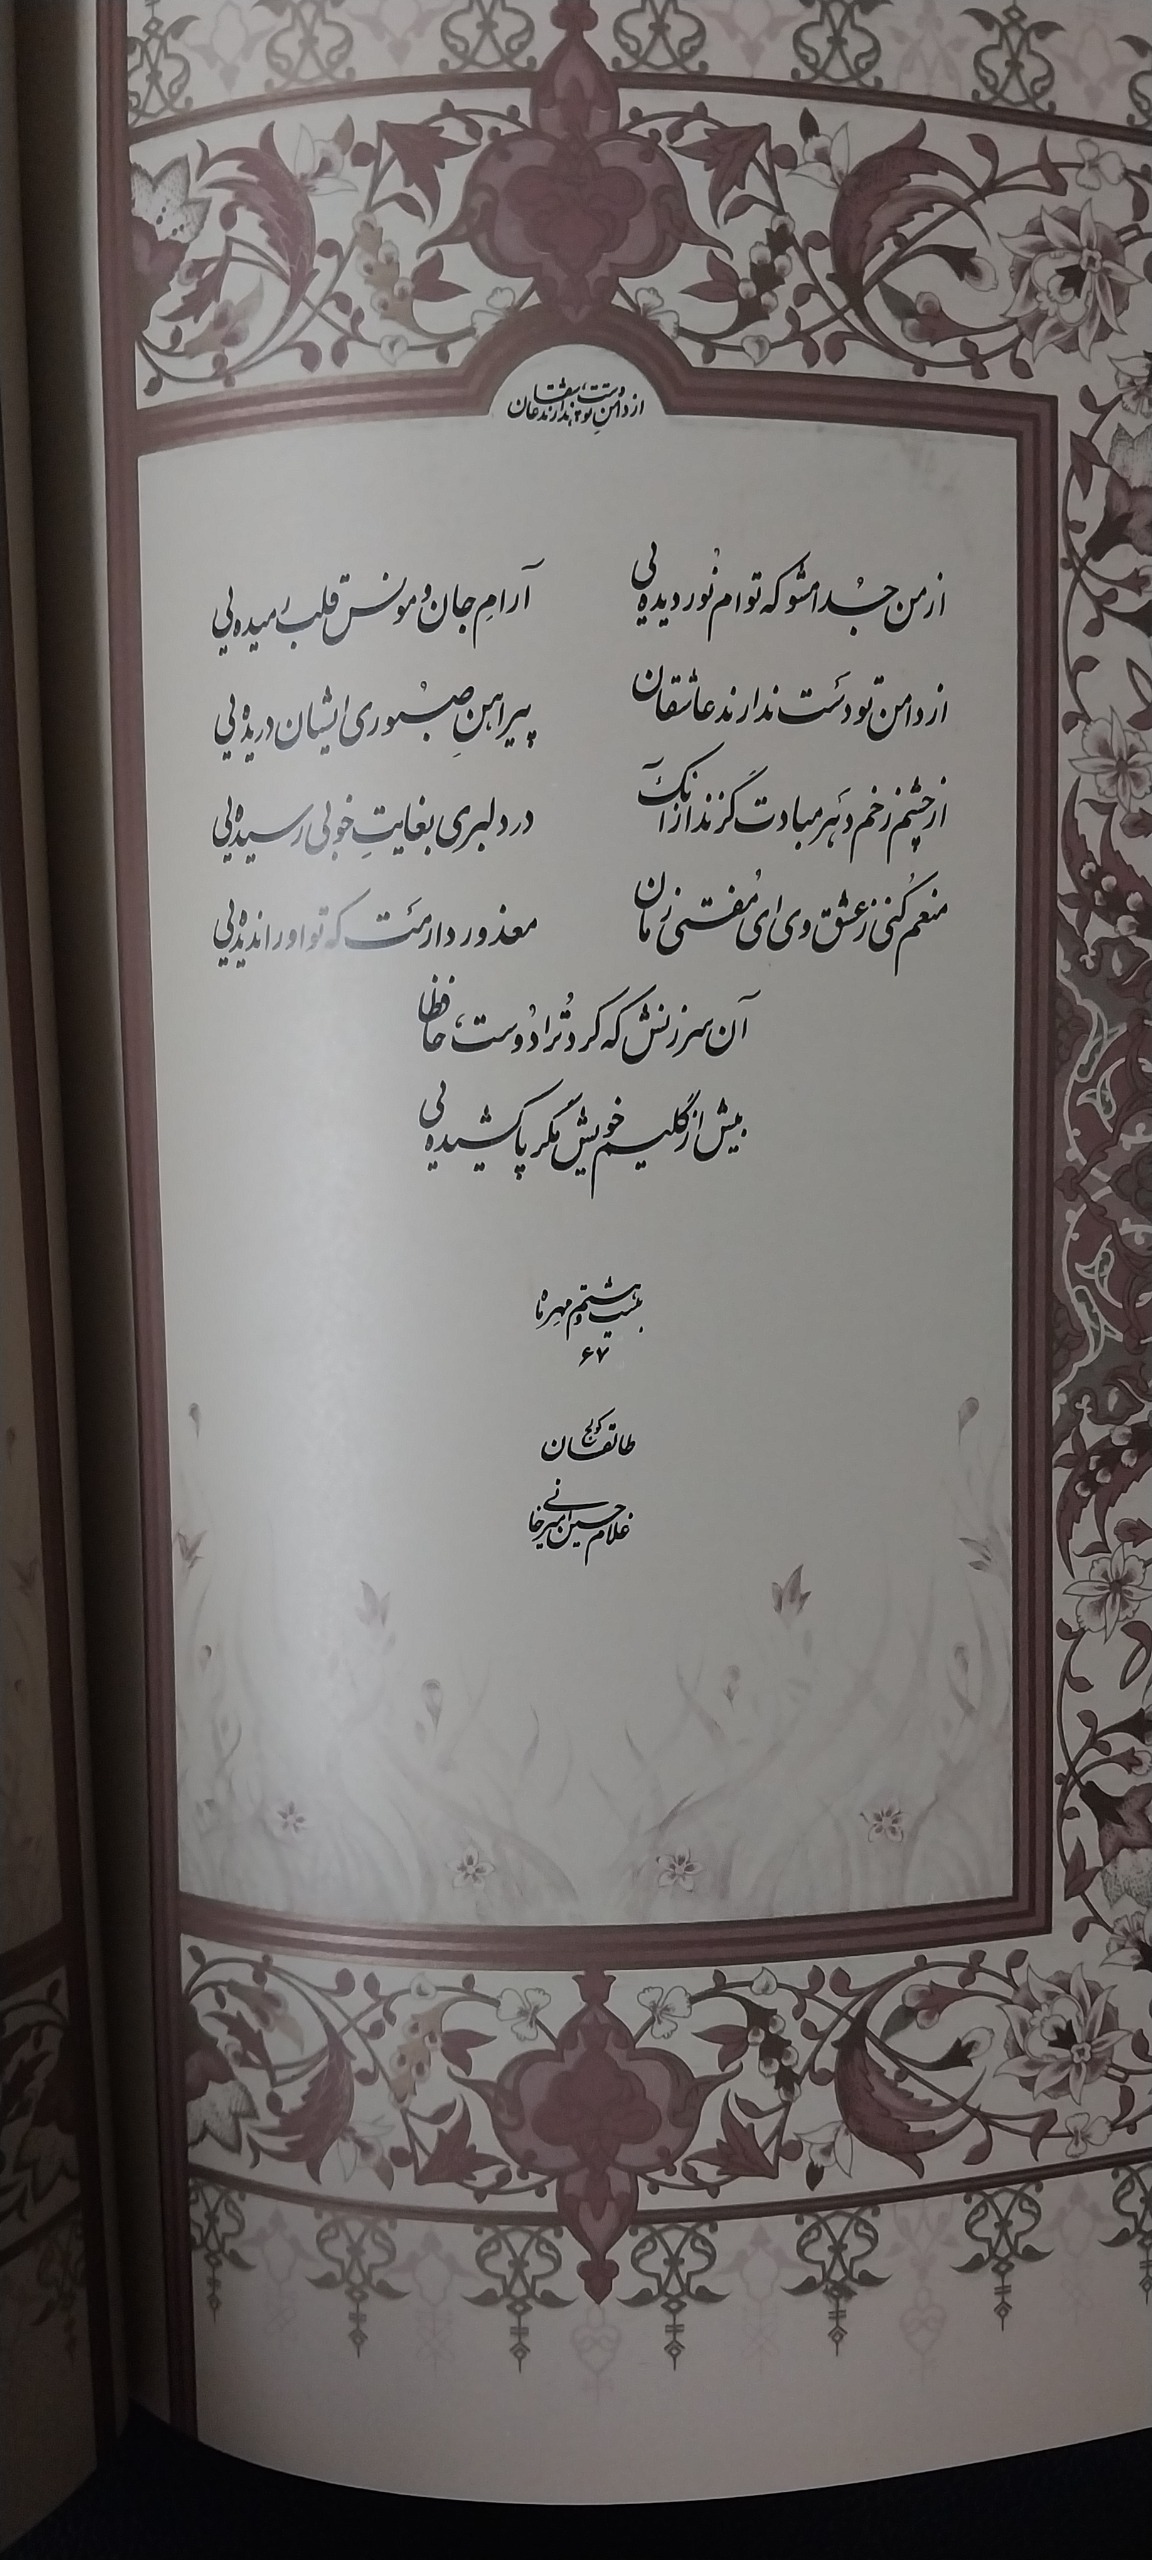 از دامن تو دست ندارند عاشقان
از من جُدا مشو که تو‌ام نُور دیده‌یی آرامِ جان و مونس قلب رمیده‌یی
از دامن تو دَست ندارند عاشقان پیراهنِ صبُوری ایشان دریده‌یی
از چشم زخم دَهر مبادت گزند از آنک در دلبری بغایتِ خوبی رسیده‌یی
منعم کُنی ز عشق وی ای مُفتی زمان معذور دارمَت که تو او را ندیده‌یی
آن سرزنش که کرد تُرا دُوست، حافظا
بیش از گلیم خویش مگر پا کشیده‌یی
بیست و هشتم مهر ماه
۶۷
کولج طالقان
غلامحسین امیرخانی